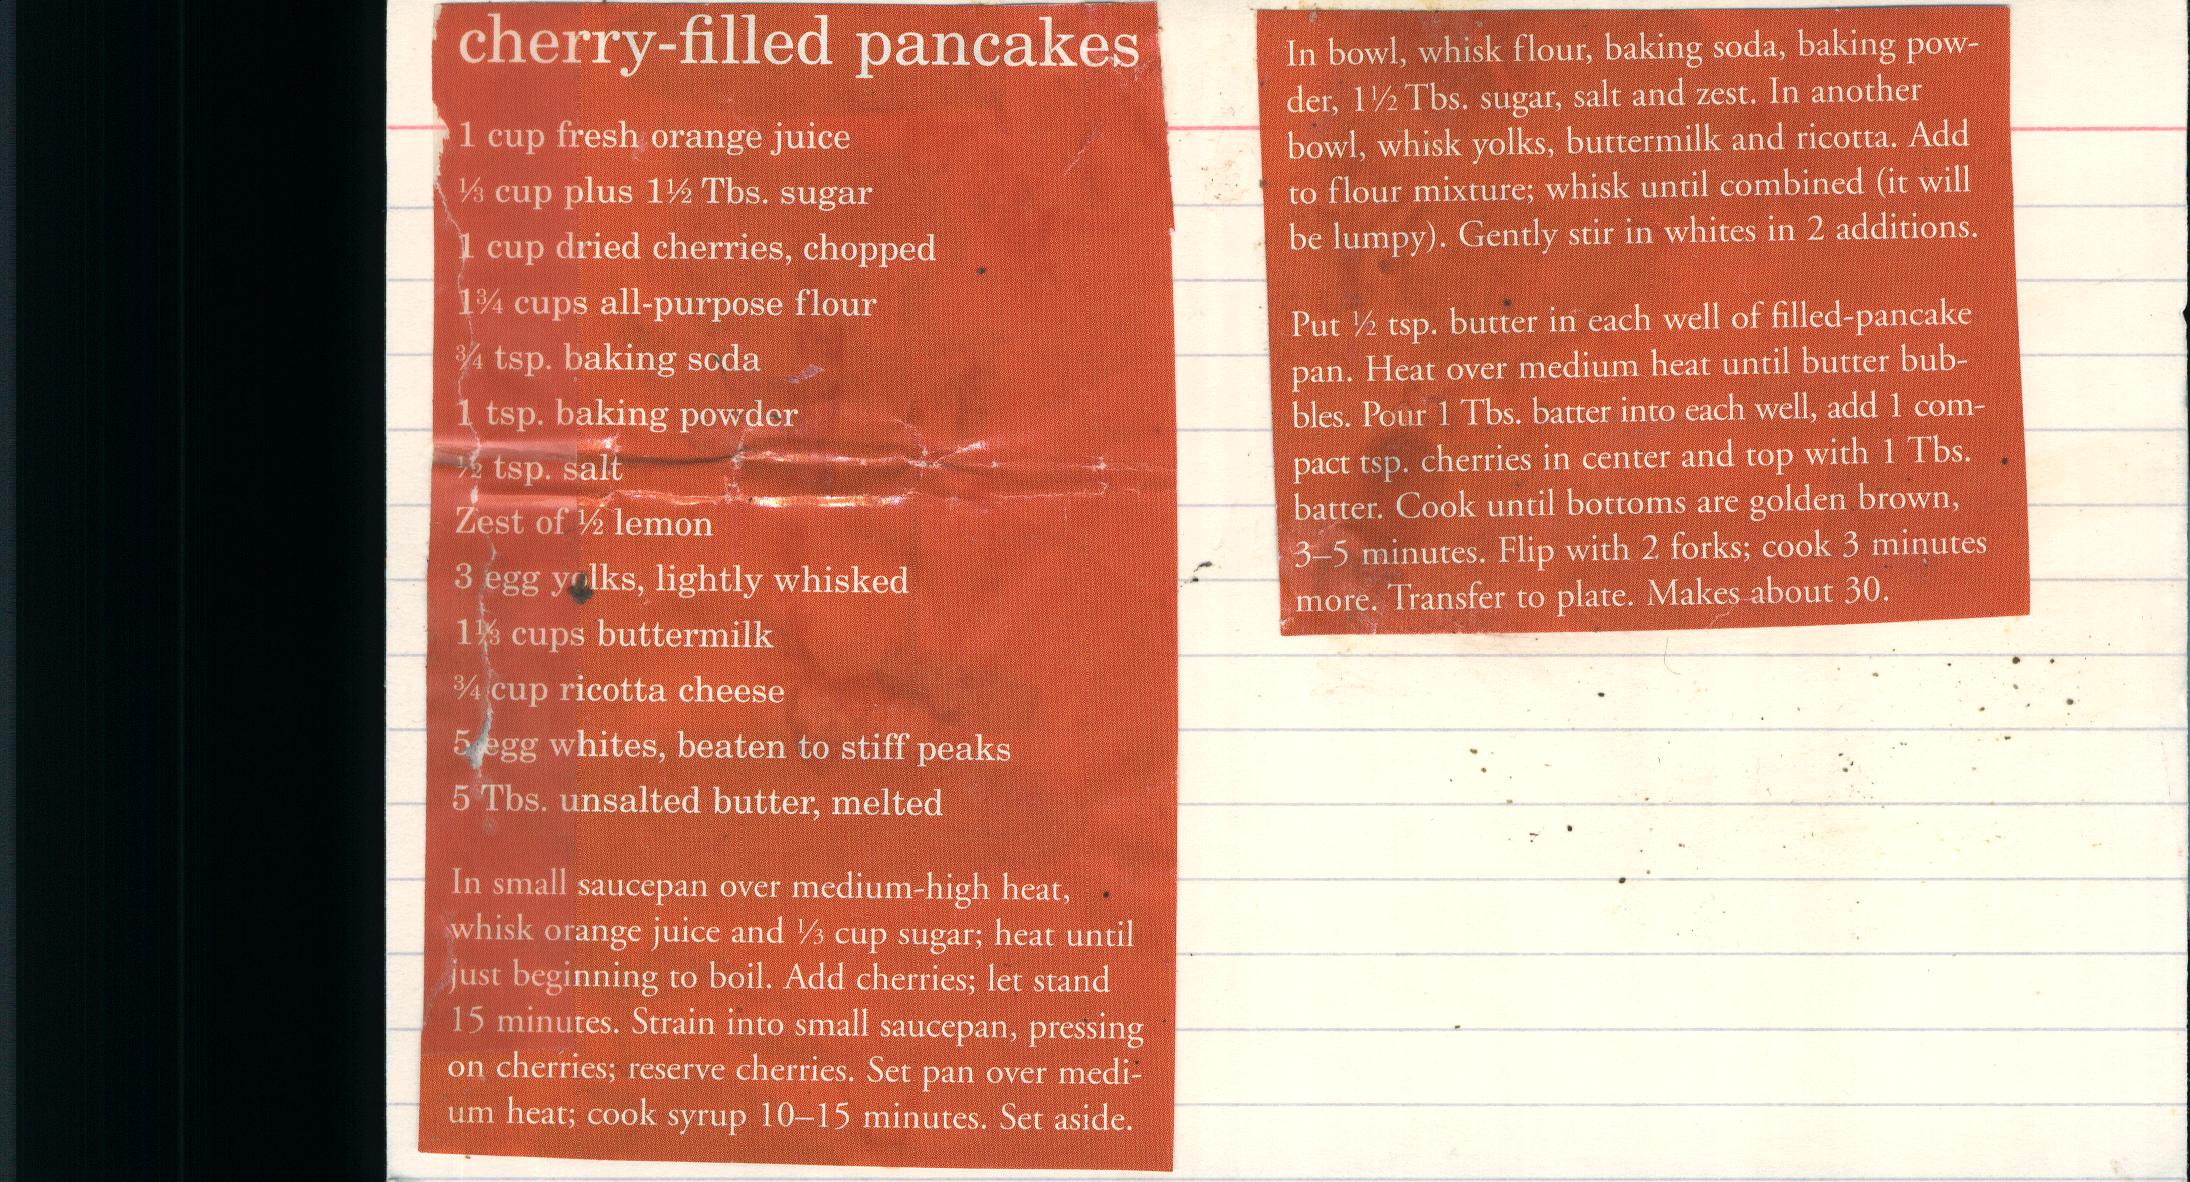 cherry-filled pancakes
1 cup fresh orange juice
⅓ cup plus 1½ Tbs. sugar
1 cup dried cherries, chopped
1¾ cups all-purpose flour
¾ tsp. baking soda
1 tsp. baking powder
½ tsp. salt
Zest of ½ lemon
3 egg yolks, lightly whisked
1⅓ cups buttermilk
¾ cup ricotta cheese
5 egg whites, beaten to stiff peaks
5 Tbs. unsalted butter, melted
In small saucepan over medium-high heat,
whisk orange juice and ⅓ cup sugar; heat until
just beginning to boil. Add cherries; let stand
15 minutes. Strain into small saucepan, pressing
on cherries; reserve cherries. Set pan over medi-
um heat; cook syrup 10–15 minutes. Set aside.
In bowl, whisk flour, baking soda, baking pow-
der, 1½ Tbs. sugar, salt and zest. In another
bowl, whisk yolks, buttermilk and ricotta. Add
to flour mixture; whisk until combined (it will
be lumpy). Gently stir in whites in 2 additions.
Put ½ tsp. butter in each well of filled-pancake
pan. Heat over medium heat until butter bub-
bles. Pour 1 Tbs. batter into each well, add 1 com-
pact tsp. cherries in center and top with 1 Tbs.
batter. Cook until bottoms are golden brown,
3–5 minutes. Flip with 2 forks; cook 3 minutes
more. Transfer to plate. Makes about 30.